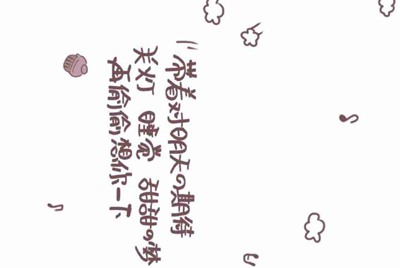 “带着对明天の期待
关灯 睡觉 甜甜の梦
再偷偷想你一下